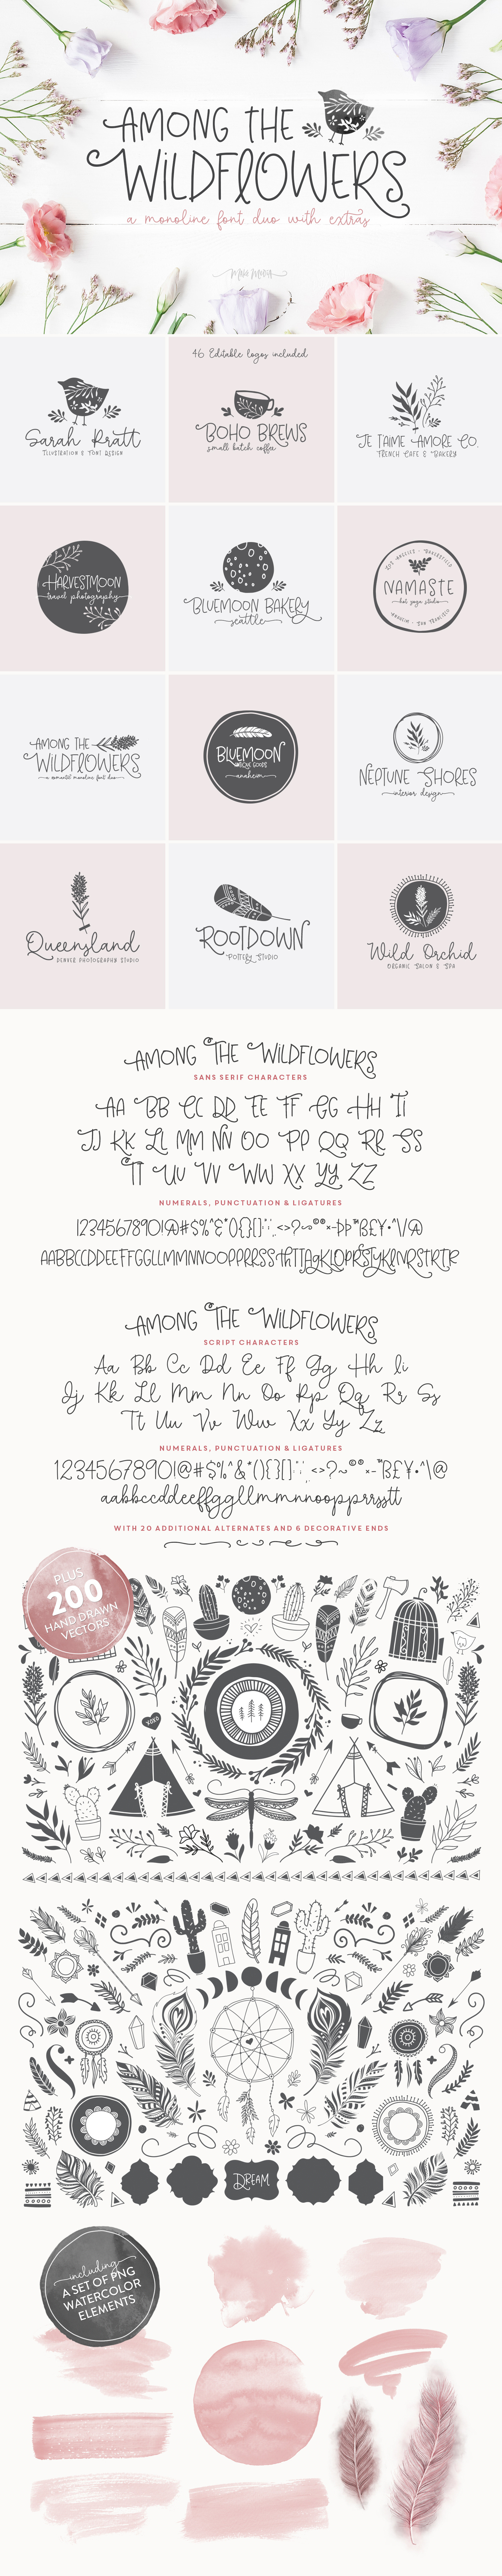 AMONG THE
WILDFLOWERS
a monoline font duo with extras
46 Editable logos included
Sarah Pratt
ILLUSTRATION & FONT DESIGN
BOHO BREWS
small batch coffee
JE T'AIME AMORE CO.
FRENCH CAFE & BAKERY
HARVESTMOON
travel photography
BLUEMOON BAKERY
seattle
LOS ANGELES · BAKERSFIELD
NAMASTE
hot yoga studio
ANAHEIM · SAN FRANCISCO
AMONG THE
WILDFLOWERS
a romantic monoline font duo
BLUEMOON
HOME GOODS
anaheim
NEPTUNE SHORES
interior design
Queensland
DENVER PHOTOGRAPHY STUDIO
ROOTDOWN
POTTERY STUDIO
Wild Orchid
ORGANIC SALON & SPA
AMONG THE WILDFLOWERS
SANS SERIF CHARACTERS
AA BB CC DD EE FF GG HH II
JJ KK LL MM NN OO PP QQ RR SS
TT UU VV WW XX YY ZZ
NUMERALS, PUNCTUATION & LIGATURES
AMONG THE WILDFLOWERS
SCRIPT CHARACTERS
Aa Bb Cc Dd Ee Ff Gg Hh Ii
Jj Kk Ll Mm Nn Oo Pp Qq Rr Ss
Tt Uu Vv Ww Xx Yy Zz
NUMERALS, PUNCTUATION & LIGATURES
aabbccddeeffggllmmnnoopprrsstt
WITH 20 ADDITIONAL ALTERNATES AND 6 DECORATIVE ENDS
PLUS
200
HAND DRAWN
VECTORS
XOXO
DREAM
including
A SET OF PNG
WATERCOLOR
ELEMENTS